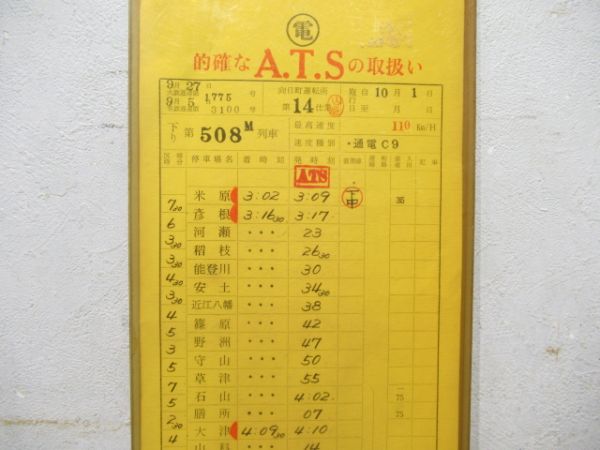 電
的確な A.T.S の取扱い
9月27日 大鉄運達第1775号 向日町運転所 施行 自 10月1日
9月5日 3100号 第14仕業 至 月 日
下り 第508M列車 最高速度 110 Km/H
速度種別 ・通電C9
停車場名 着時刻 発時刻 着発線 記事
ATS
米原 3:02 3:09 下中 35
7 30 彦根 3:16 30 3:17
6 河瀬 ・・・ 23
3 30 稲枝 ・・・ 26 30
3 30 能登川 ・・・ 30
4 30 安土 ・・・ 34 30
3 30 近江八幡 ・・・ 38
4 篠原 ・・・ 42
5 野洲 ・・・ 47
3 守山 ・・・ 50
5 草津 ・・・ 55
7 石山 ・・・ 4:02 75
5 膳所 ・・・ 07 75
2 30 大津 4:09 30 4:10
4 山科 ・・・ 14